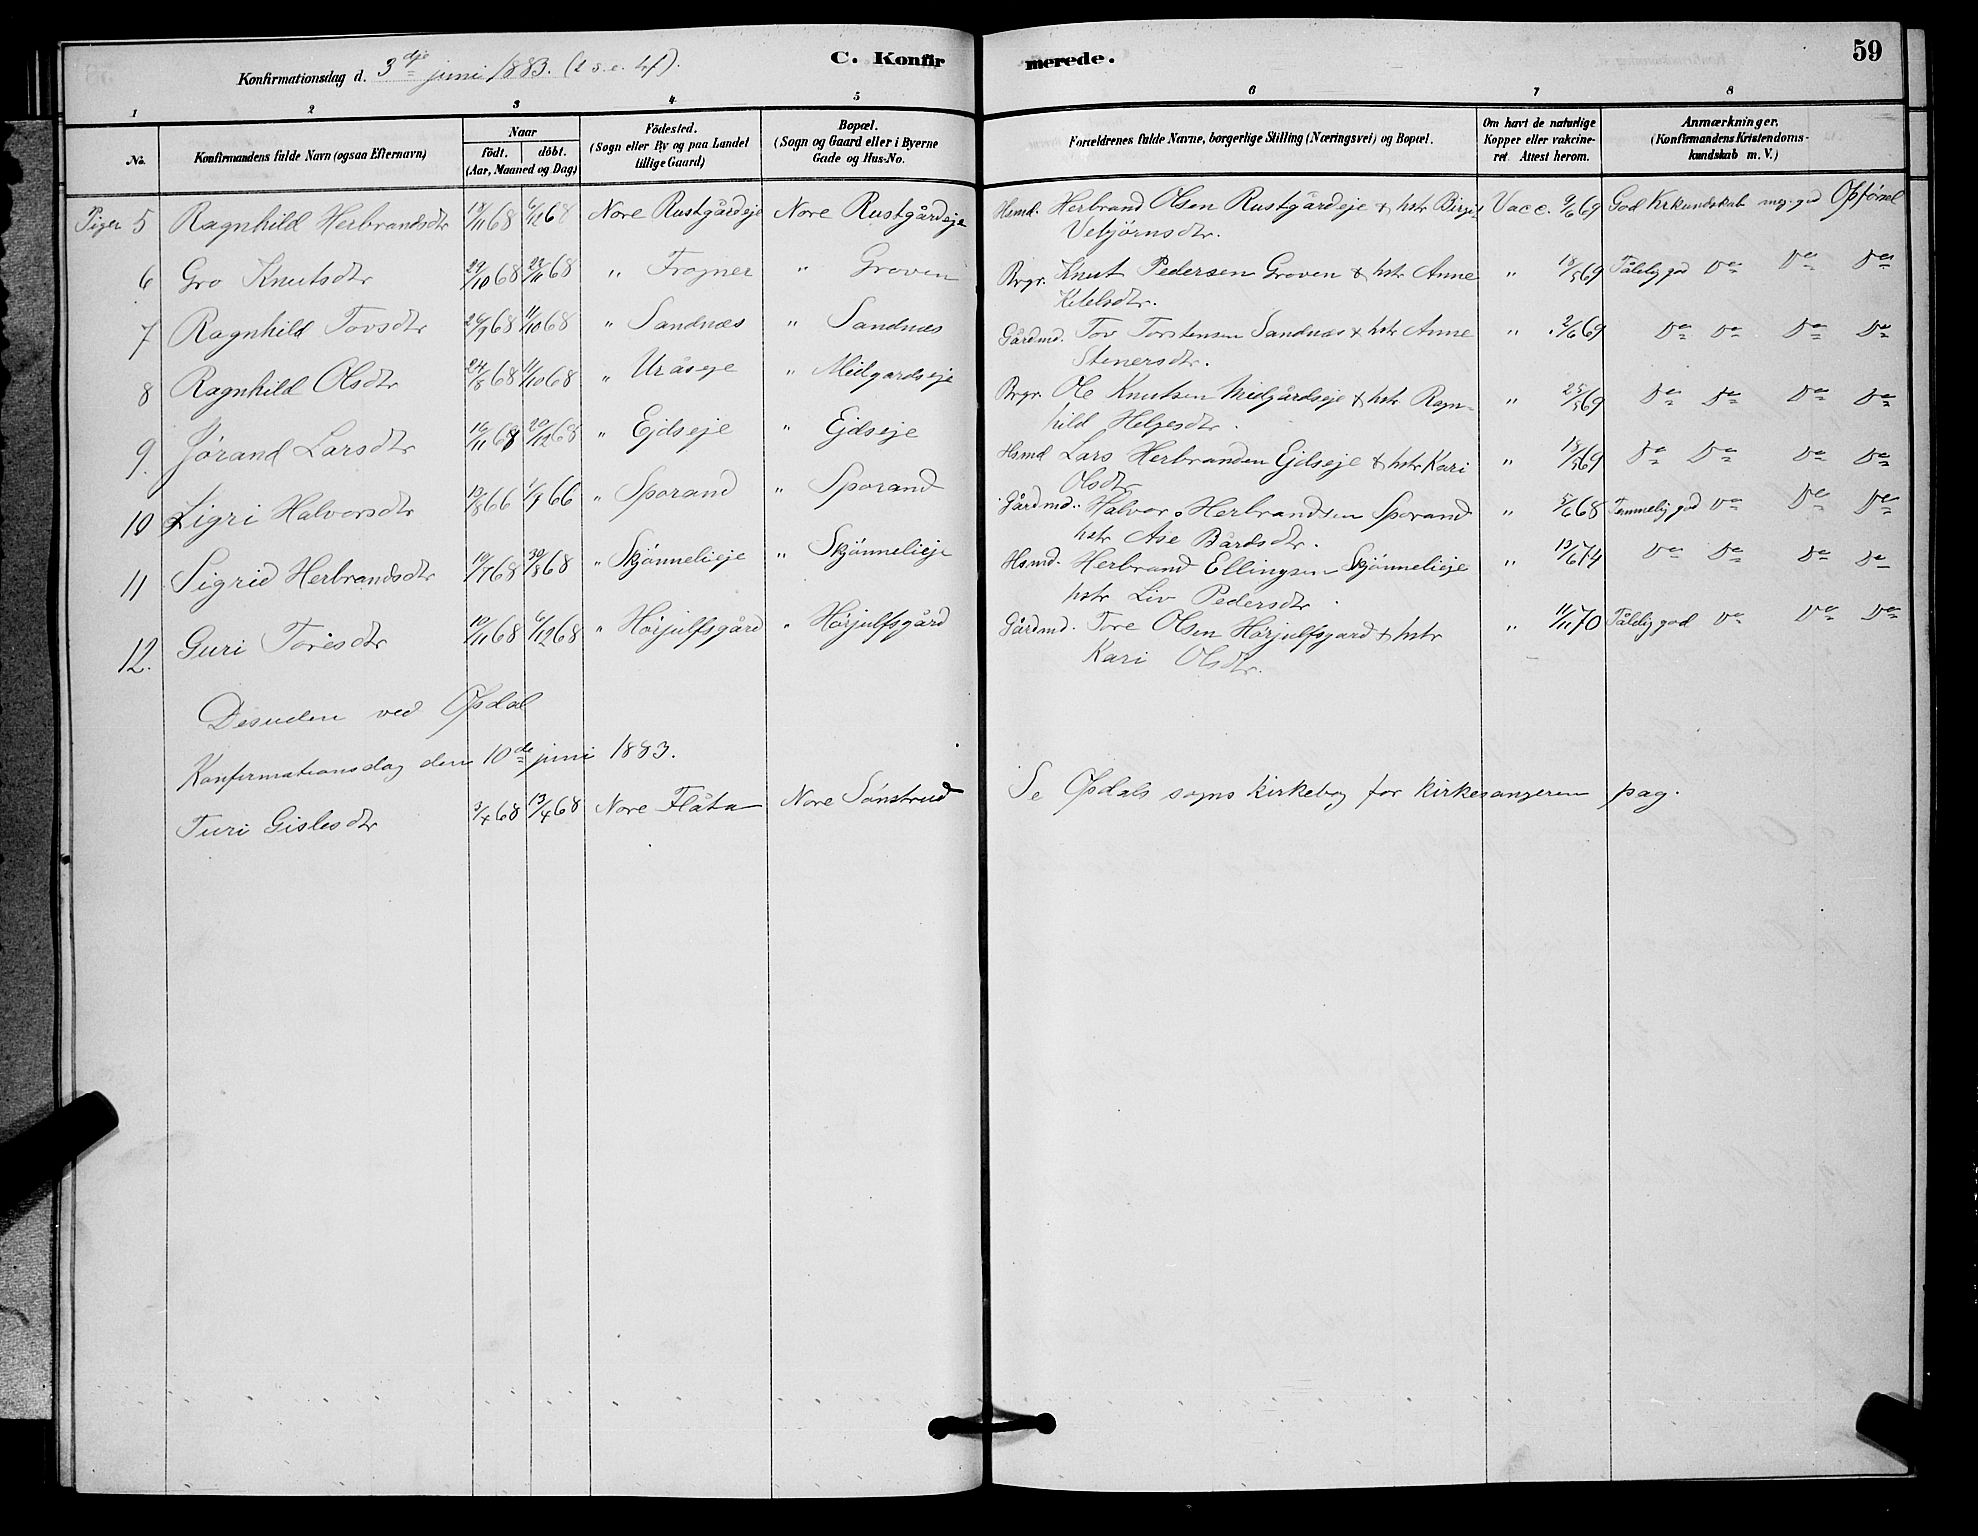 Konfirmationsdag d. 3dje juni 1883. (2 s. e. tr).
C. Konfirmerede.
59
1 2 3 4 5 6 7 8
No. Konfirmandens fulde Navn (ogsaa Efternavn) Naar født. døbt. (Aar, Maaned og Dag) Födested. (Sogn eller By og paa Landet tillige Gaard) Bopæl. (Sogn og Gaard eller i Byerne Gade og Hus-No. Forældrenes fulde Navne, borgerlige Stilling (Næringsvei) og Bopæl. Om havt de naturlige Kopper eller vakcineret. Attest herom. Anmærkninger. (Konfirmandens Kristendomskundskab m. V.)
Piger 5 Ragnhild Herbrandsdtr 18/11 68 6/12 68 Nore Rustgårdeje Nore Rustgårdeje Hsmd. Herbrand Olsen Rustgårdeje & hstr Birgit Vacc. 9/6 69 God Krkundskab meg. god Opførsel
Vebjørnsdtr.
6 Gro Knutsdtr 29/10 68 22/11 68 " Frogner " Groven Brgr. Knut Pedersen Groven & hstr Anne " 18/5 69 Tålelig god Do Do Do
Ketelsdtr.
7 Ragnhild Tovsdtr 26/9 68 11/10 68 " Sandnæs " Sandnæs Gårdmd. Tov Torstensen Sandnæs & hstr Anne " 2/6 69 Do Do Do Do
Stenersdtr.
8 Ragnhild Olsdtr 24/8 68 11/10 68 " Uråseje " Midgardseje Brgr. Ole Knutsen Midgårdseje & hstr Ragn- " 25/5 69 Do Do Do Do
hild Helgesdtr.
9. Jørand Larsdtr 16/11 68 20/12 68 " Ejdseje " Ejdseje Hsmd Lars Herbrandsen Ejdseje & hstr Kari " 18/5 69 Do Do Do Do
Olsdtr
10 Ligri Halvorsdtr 13/8 66 1/9 66 " Sporand " Sporand Gårdmd. Halvor Herbrandsen Sporand " 5/6 68 Temmelig god Do Do Do
hstr Åse Bårdsdtr.
11 Sigrid Herbrandsdtr 19/7 68 30/8 68 " Skjønnelieje " Skjønnelieje Hsmd. Herbrand Ellingsen Skjønnelieje " 13/6 74 Do Do Do Do
hstr Liv Pedersdtr.
12. Guri Toresdtr 10/11 68 6/12 68 " Hørjulfsgård " Hørjulfsgård Gårdmd. Tore Olsen Hørjulfsgard & hstr " 11/11 70 Tålelig god Do Do Do
Kari Olsdtr.
Desuden ved Opdal
Konfirmationsdag den 10de juni 1883.
Turi Gislesdtr 3/4 68 13/4 68 Nore Flåta Nore Sønstrud Se Opdals sogns kirkebog for kirkesangeren pag.